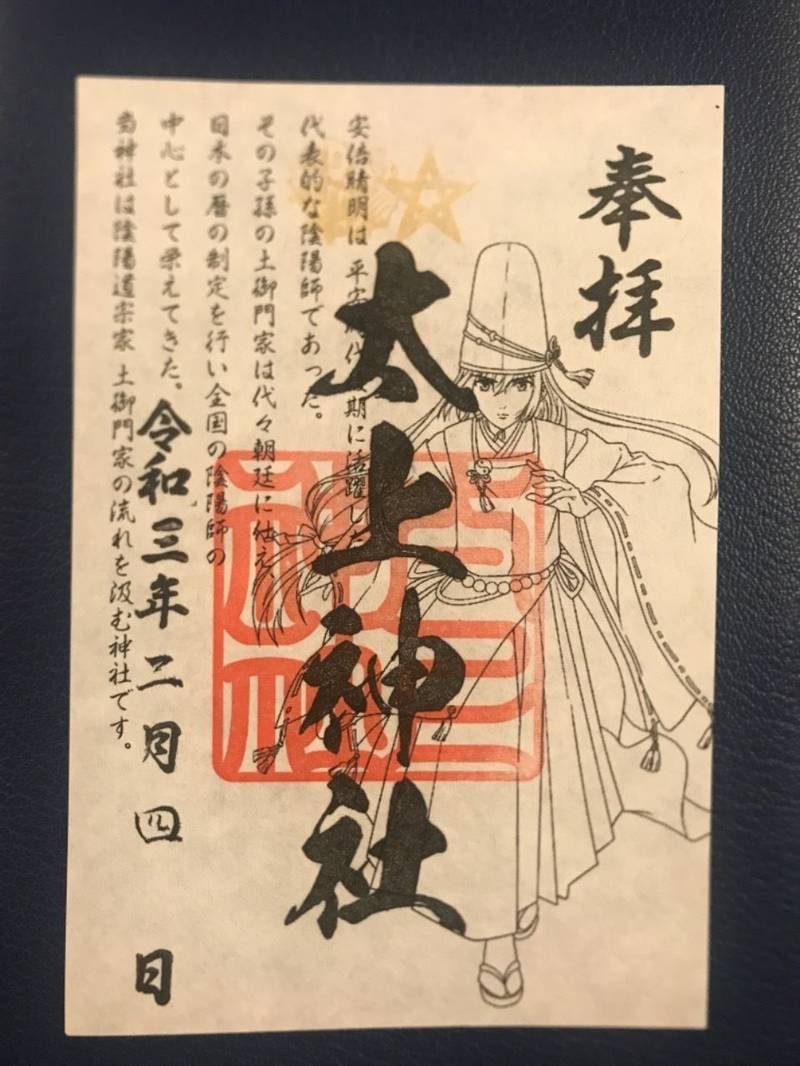 奉拝
安倍晴明は 平安時代 期に活躍した
代表的な陰陽師であった。
その子孫の土御門家は代々朝廷に仕え、
日本の暦の制定を行い全国の陰陽師の
中心として栄えてきた。
当神社は陰陽道宗家 土御門家の流れを汲む神社です。
太上神社
令和三年 二月 四 日